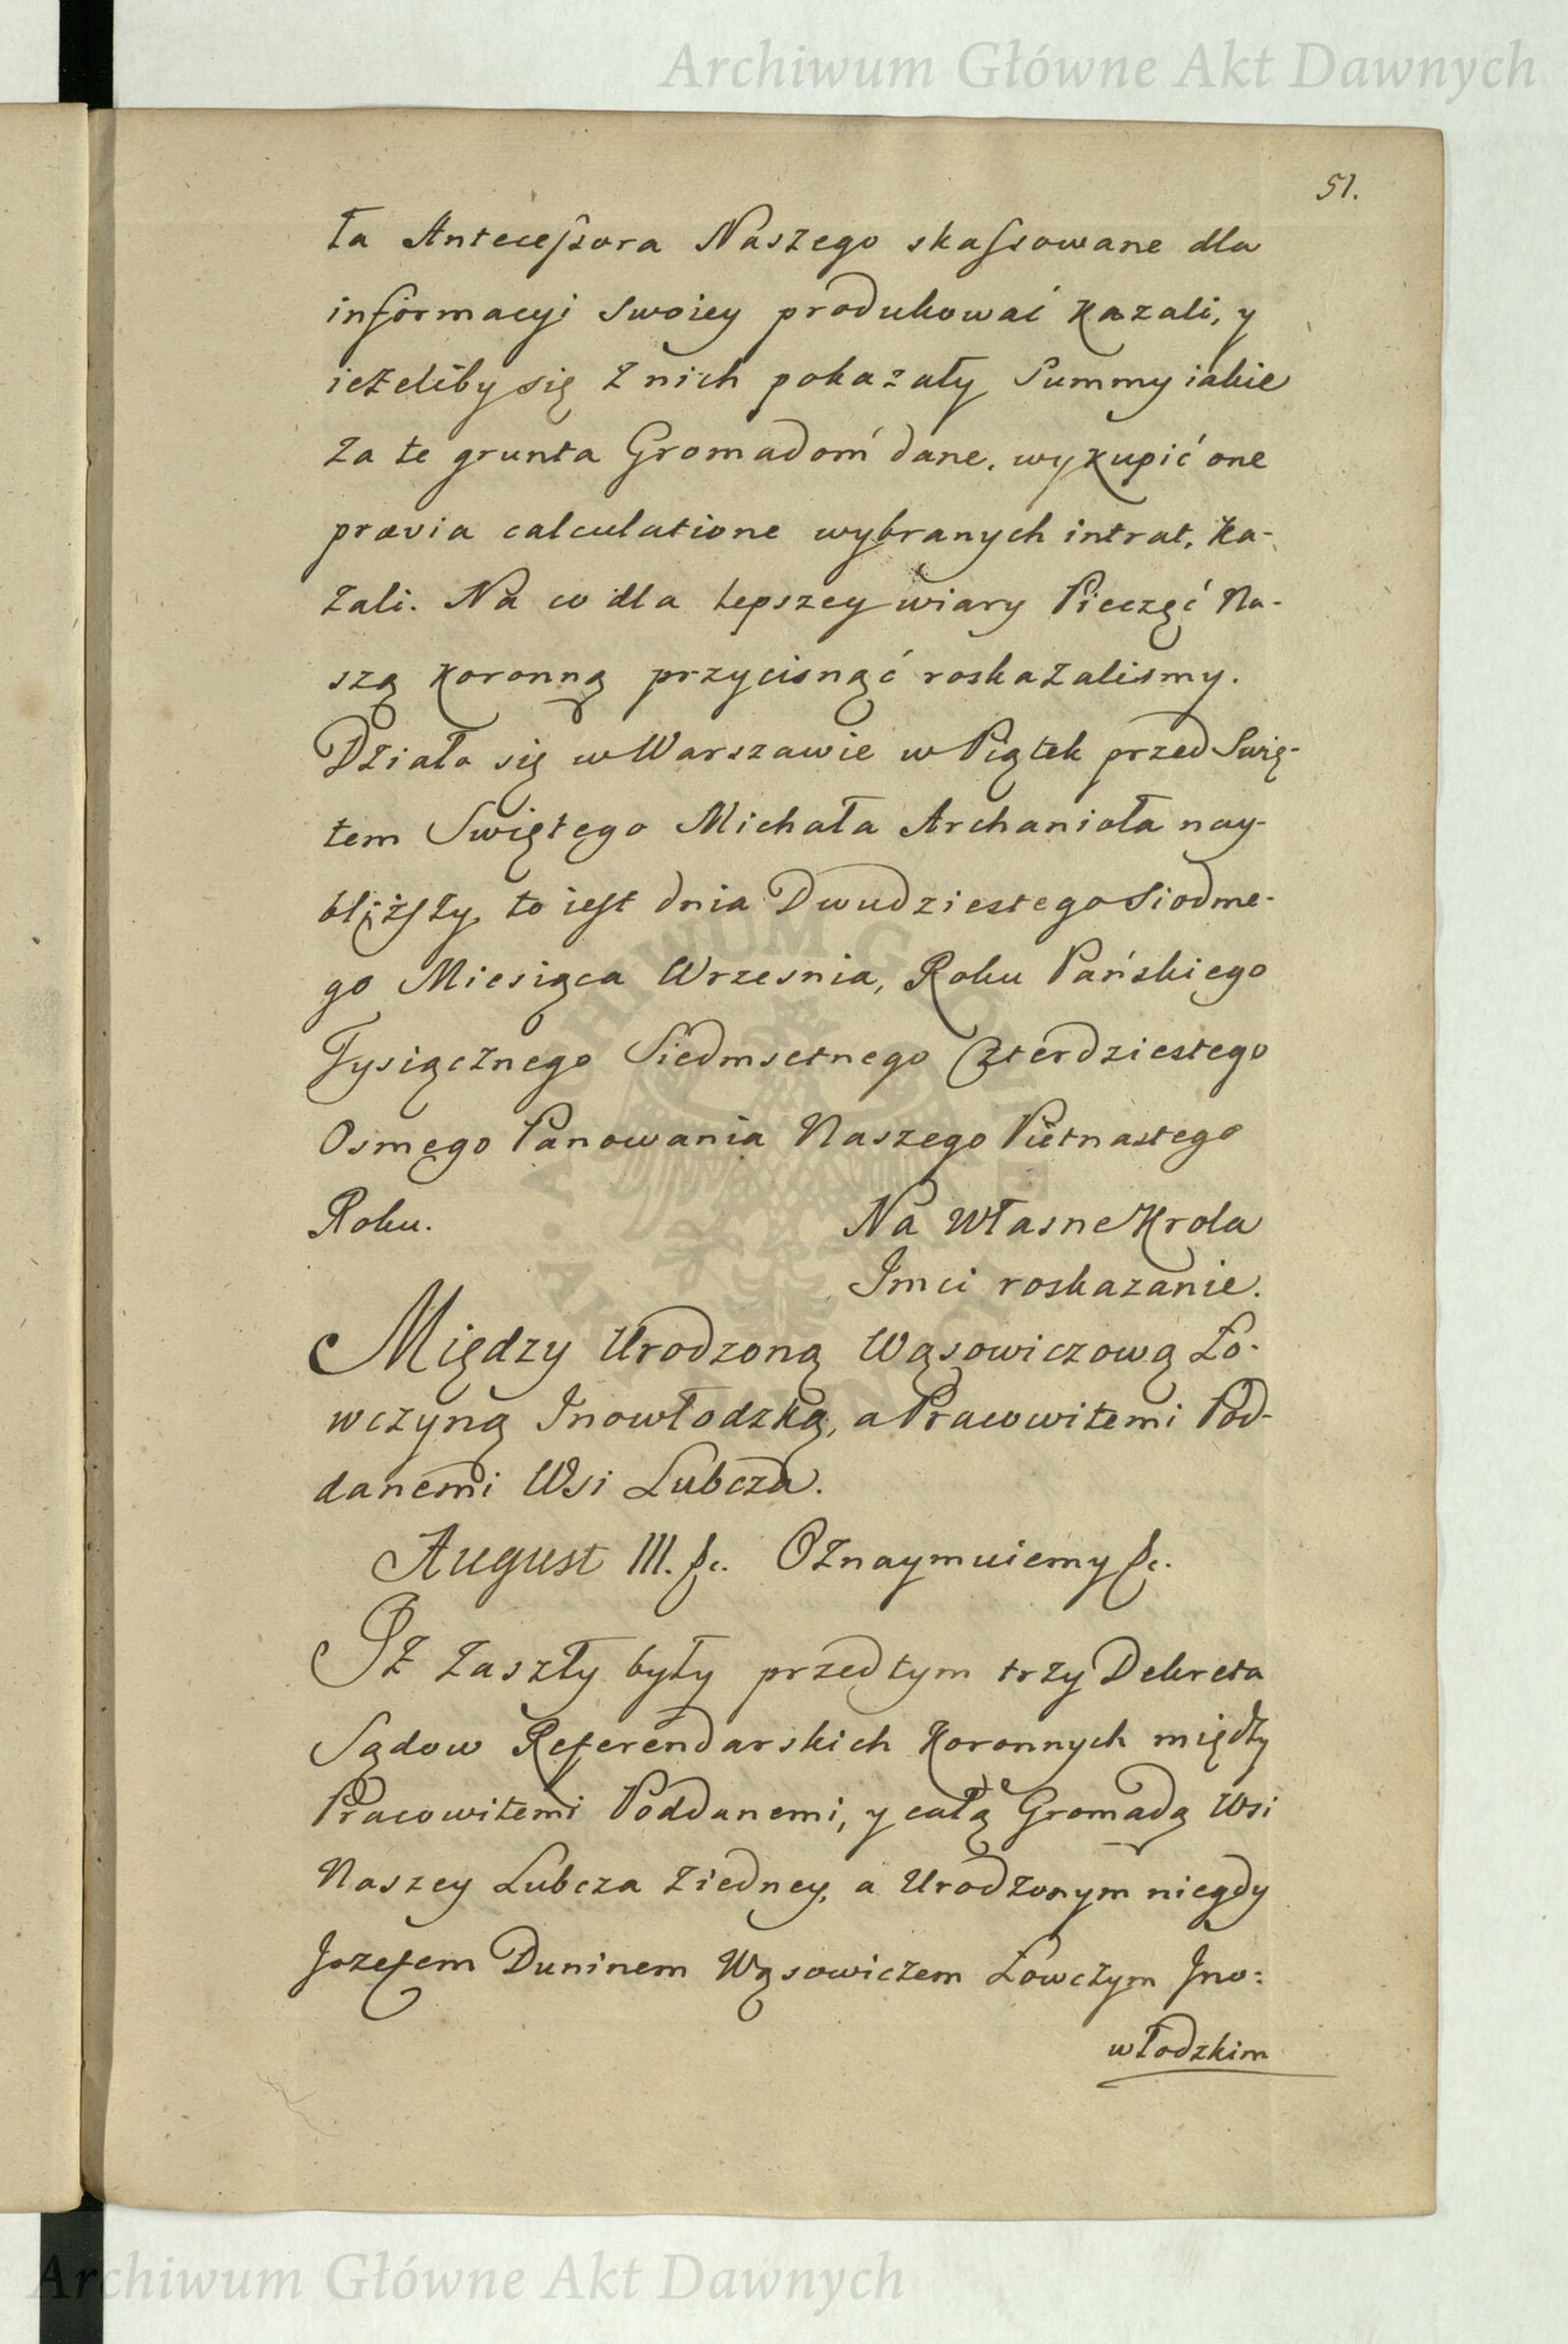 Archiwum Główne Akt Dawnych
51.
ła Antecessora Naszego skassowane dla
informacyi swoiey produkować kazali, y
ieżeliby się z nich pokazały Summy iakie
za te grunta Gromadom dane, wykupić one
prævia calculatione wybranych intrat, ka-
zali. Na co dla lepszey wiary Pieczęć Na-
szą Koronną przycisnąć roskazalismy.
Działo się w Warszawie w Piątek przed Swię-
tem Swiętego Michała Archanioła nay-
bliższy, to iest dnia Dwudziestego Siodme-
go Miesiąca Wrzesnia, Roku Pańskiego
Tysiącznego Siedmsetnego Czterdziestego
Osmego Panowania Naszego Piętnastego
Roku. Na Własne Krola
Imci roskazanie.
Między Urodzoną Wąsowiczową Ło-
wczyną Inowłodzką, a Pracowitemi Pod-
danemi Wsi Lubcza.
August III. &c. Oznaymuiemy &c.
Iż zaszły były przedtym trzy Dekreta
Sądow Referendarskich Koronnych między
Pracowitemi Poddanemi, y całą Gromadą Wsi
Naszey Lubcza ziedney, a Urodzonym niegdy
Jozefem Duninem Wąsowiczem Łowczym Jno:
włodzkim
ARCHIWUM GŁÓWNE AKT DAWNYCH
Archiwum Główne Akt Dawnych